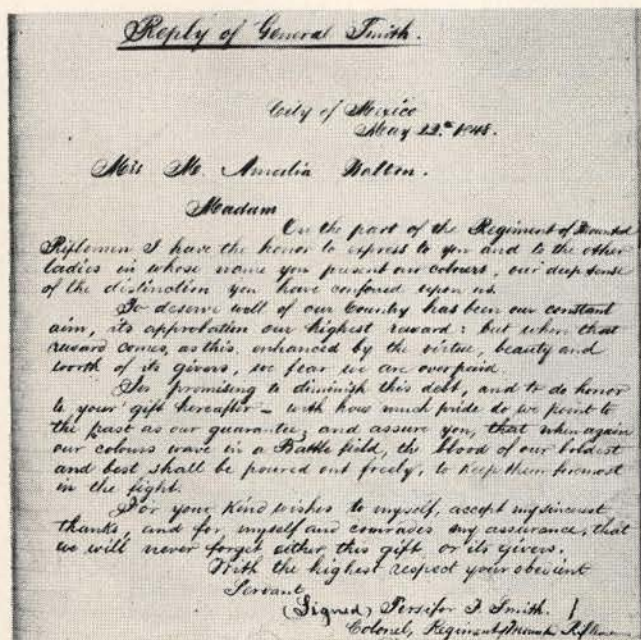 Reply of General Smith.
City of Mexico
May 22.d 1848.
Mis M. Amelia Walton.
Madam
On the part of the Regiment of Mounted
Riflemen I have the honor to express to you and to the other
ladies in whose name you present our colours, our deep sense
of the distinction you have confered upon us.
To deserve well of our Country has been our constant
aim, its approbation our highest reward: but when that
reward comes, as this, enhanced by the virtue, beauty and
worth of its givers, we fear we are overpaid.
For promising to diminish this debt, and to do honor
to your gift hereafter – with how much pride do we point to
the past as our guarantee, and assure you, that when again
our colours wave in a Battle field, the blood of our boldest
and best shall be poured out freely, to keep them foremost
in the fight.
For your kind wishes to myself, accept my sincerest
thanks, and for myself and comrades my assurance, that
we will never forget either this gift, or its givers.
With the highest respect your obedient
Servant
(Signed) Persifor F. Smith. }
Colonel, Regiment Mount. Riflemen